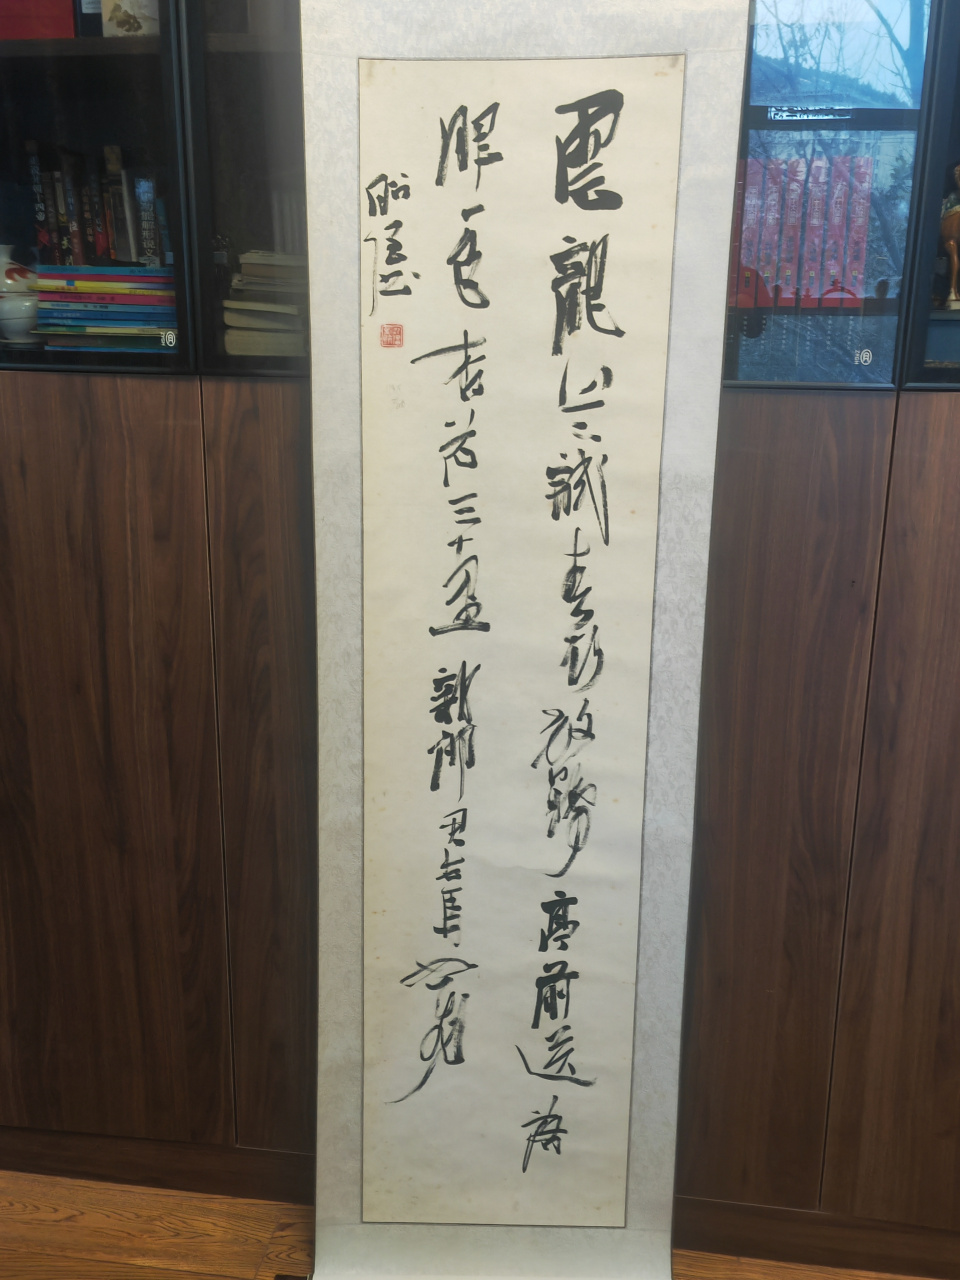 雲龍山下試春衣放鶴亭前送落
暉一色杏花三十里新郎君去馬如飛